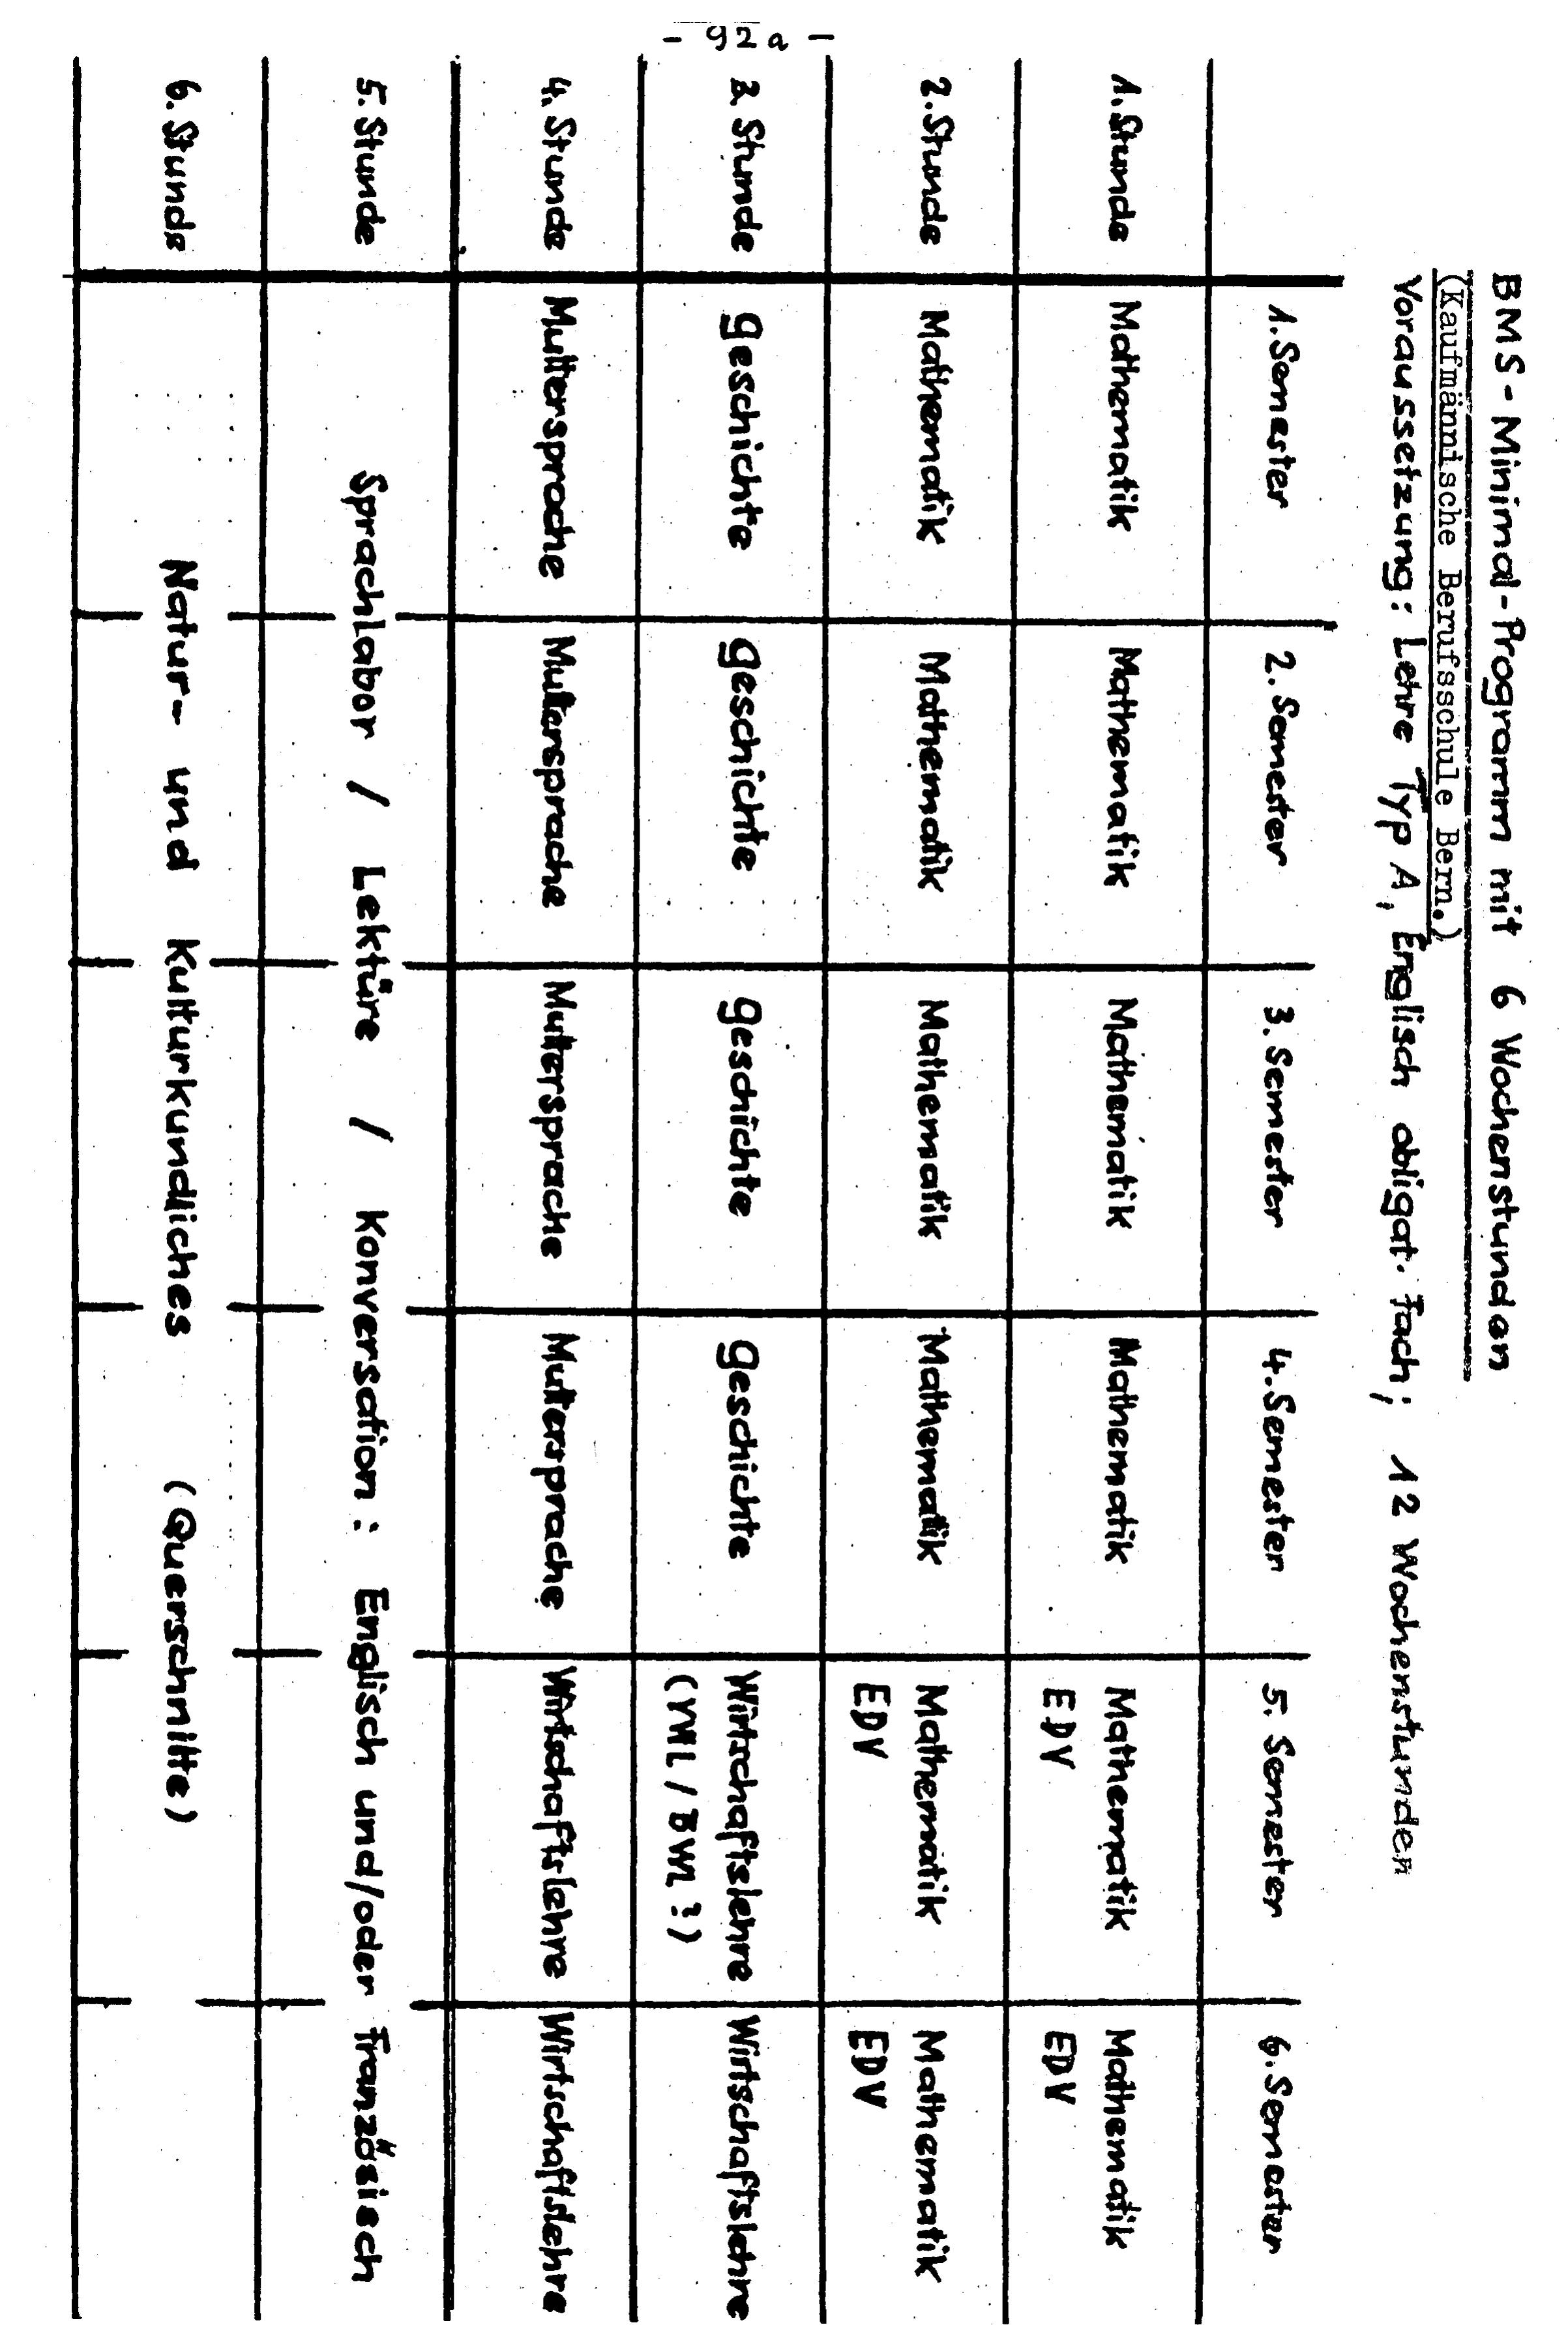 - 92a -
BMS-Minimal-Programm mit 6 Wochenstunden
(Kaufmännische Berufsschule Bern.)
Voraussetzung: Lehre Typ A, Englisch obligat. Fach; 12 Wochenstunden
1. Semester 2. Semester 3. Semester 4. Semester 5. Semester 6. Semester
1. Stunde Mathematik Mathematik Mathematik Mathematik Mathematik Mathematik
EDV EDV
2. Stunde Mathematik Mathematik Mathematik Mathematik Mathematik Mathematik
EDV EDV
3. Stunde Geschichte Geschichte Geschichte Geschichte Wirtschaftslehre Wirtschaftslehre
(VWL / BWL ?)
4. Stunde Muttersprache Muttersprache Muttersprache Muttersprache Wirtschaftslehre Wirtschaftslehre
5. Stunde Sprachlabor / Lektüre / Konversation: Englisch und/oder Französisch
6. Stunde Natur- und Kulturkundliches (Querschnitte)